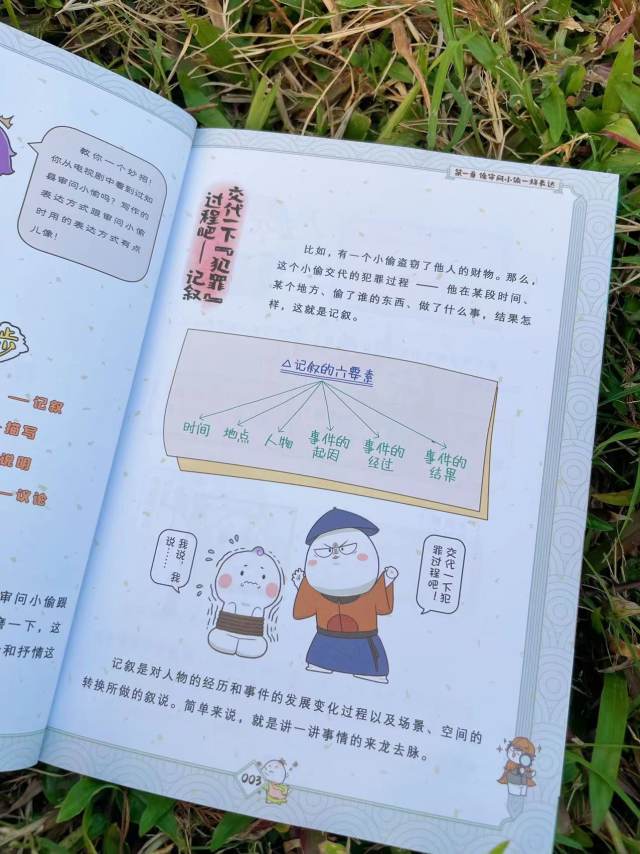 教你一个妙招！
你从电视剧中看到过知
县审问小偷吗？写作的
表达方式跟审问小偷
时用的表达方式有点
儿像！
步
——记叙
描写
说明
——议论
审问小偷跟
一下，这
和抒情这
第一章 像审问小偷一样表达
交代一下『犯罪』
过程吧——记叙
比如，有一个小偷盗窃了他人的财物。那么，
这个小偷交代的犯罪过程——他在某段时间、
某个地方、偷了谁的东西、做了什么事，结果怎
样，这就是记叙。
△记叙的六要素
时间 地点 人物 事件的起因 事件的经过 事件的结果
我说，我
说……
交代一下犯
罪过程吧！
记叙是对人物的经历和事件的发展变化过程以及场景、空间的
转换所做的叙说。简单来说，就是讲一讲事情的来龙去脉。
003